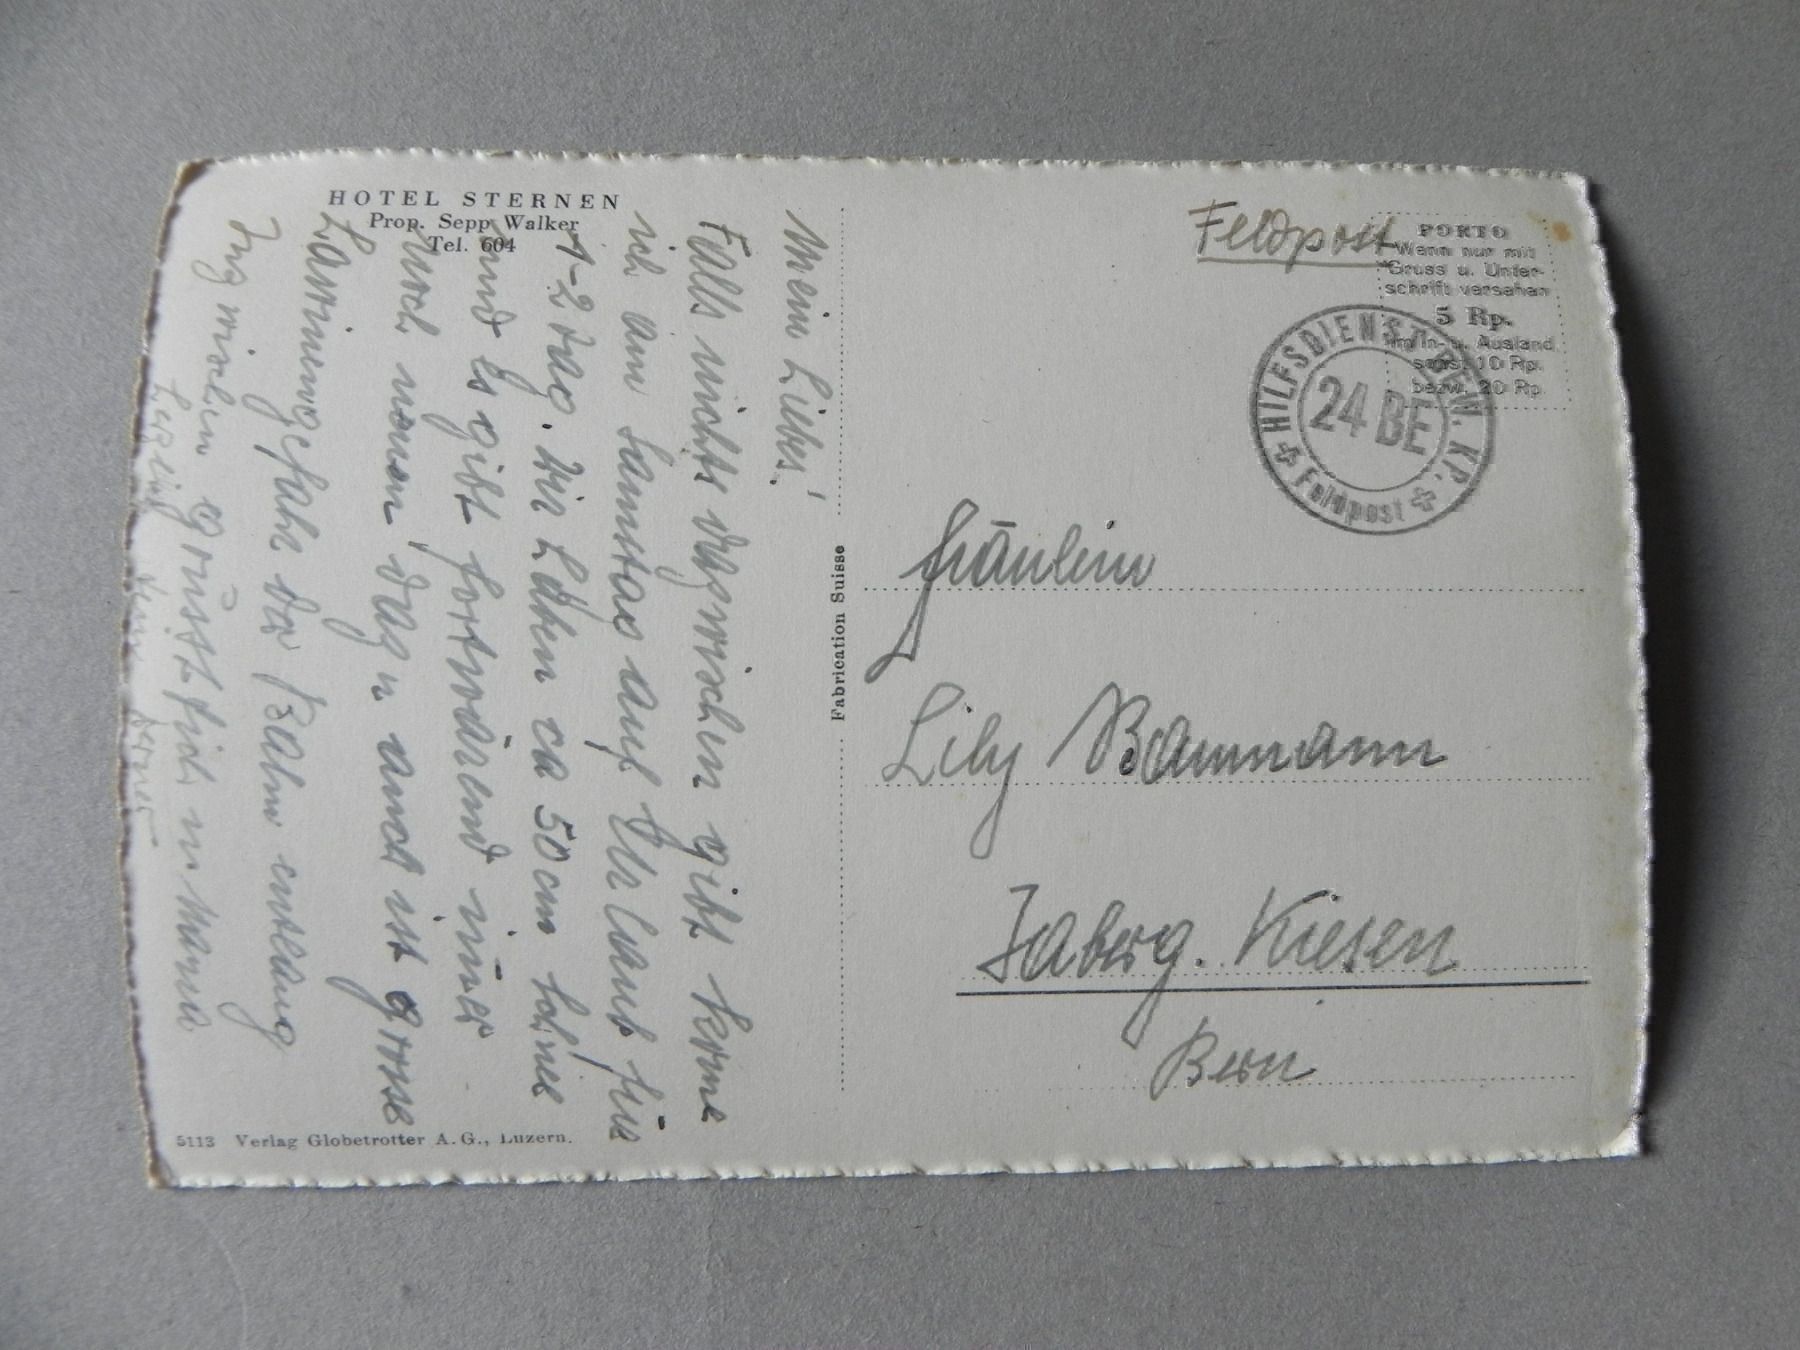 HOTEL STERNEN
Prop. Sepp Walker
Tel. 604
Mein Liebs!
Falls nichts dazwischen gibt komme
ich am Samstag auf Urlaub für
1-2 Tag. Wir haben ca 50 cm Schnee
und es gibt fortwärend immer
noch neuen dazu auch ist grosse
Lawinengefahr der Bahn entlang
Inzwischen grüsst Dich u. Mama
herzlich Dein
5113 Verlag Globetrotter A.G., Luzern.
Fabrication Suisse
Feldpost
PORTO
Wenn nur mit
Gruss u. Unter-
schrift versehen
5 Rp.
im In- u. Ausland
sonst 10 Rp.
bezw. 20 Rp.
HILFSDIENST BEW. KP.
24 BE
Feldpost
Fräulein
Lily Baumann
Jaberg. Kiesen
Bern